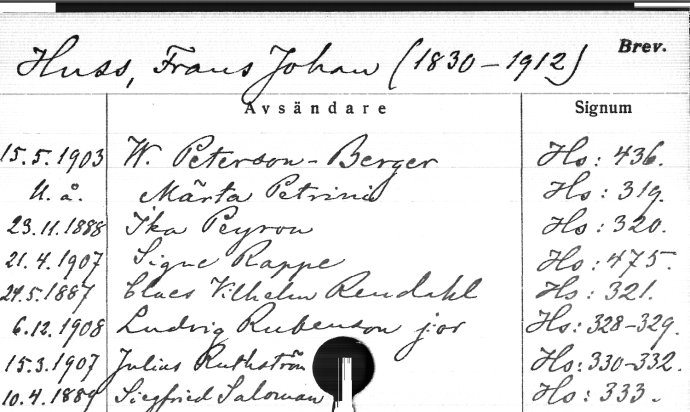 Huss, Frans Johan (1830-1912) Brev.
Avsändare Signum
15.5.1903 W. Peterson-Berger Hs: 436.
U. å. Märta Petrini Hs: 319.
23.11.1888 Ika Peyron Hs: 320.
21.4.1907 Signe Rappe Hs: 475.
24.5.1887 Claes Vilhelm Rendahl Hs: 321.
6.12.1908 Ludvig Rubenson jor Hs: 328-329.
15.3.1907 Julius Ruthström Hs: 330-332.
10.4.1889 Siegfried Saloman Hs: 333.